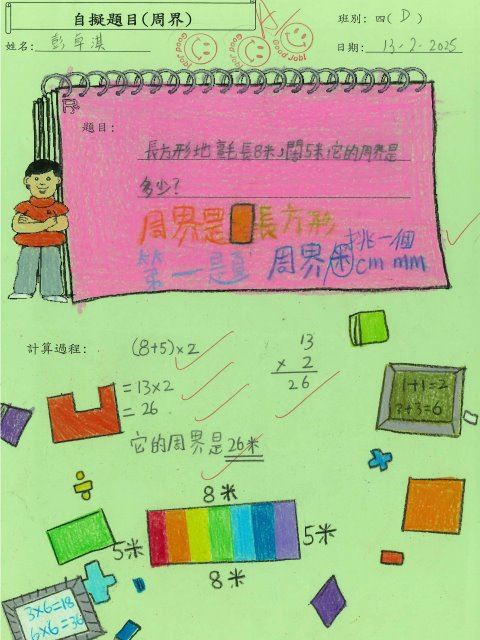 自擬題目(周界)
班別: 四( D )
姓名: 彭卓淇
日期: 13-2-2025
題目:
長方形地氈長8米,闊5米,它的周界是
多少?
周界是 長方形
第一是 周界
挑一個
cm mm
計算過程:
(8+5)×2
= 13×2
= 26
13
× 2
26
它的周界是26米
1+1=2
3+3=6
8米
5米
5米
8米
3×6=18
6×6=36
Good Job!